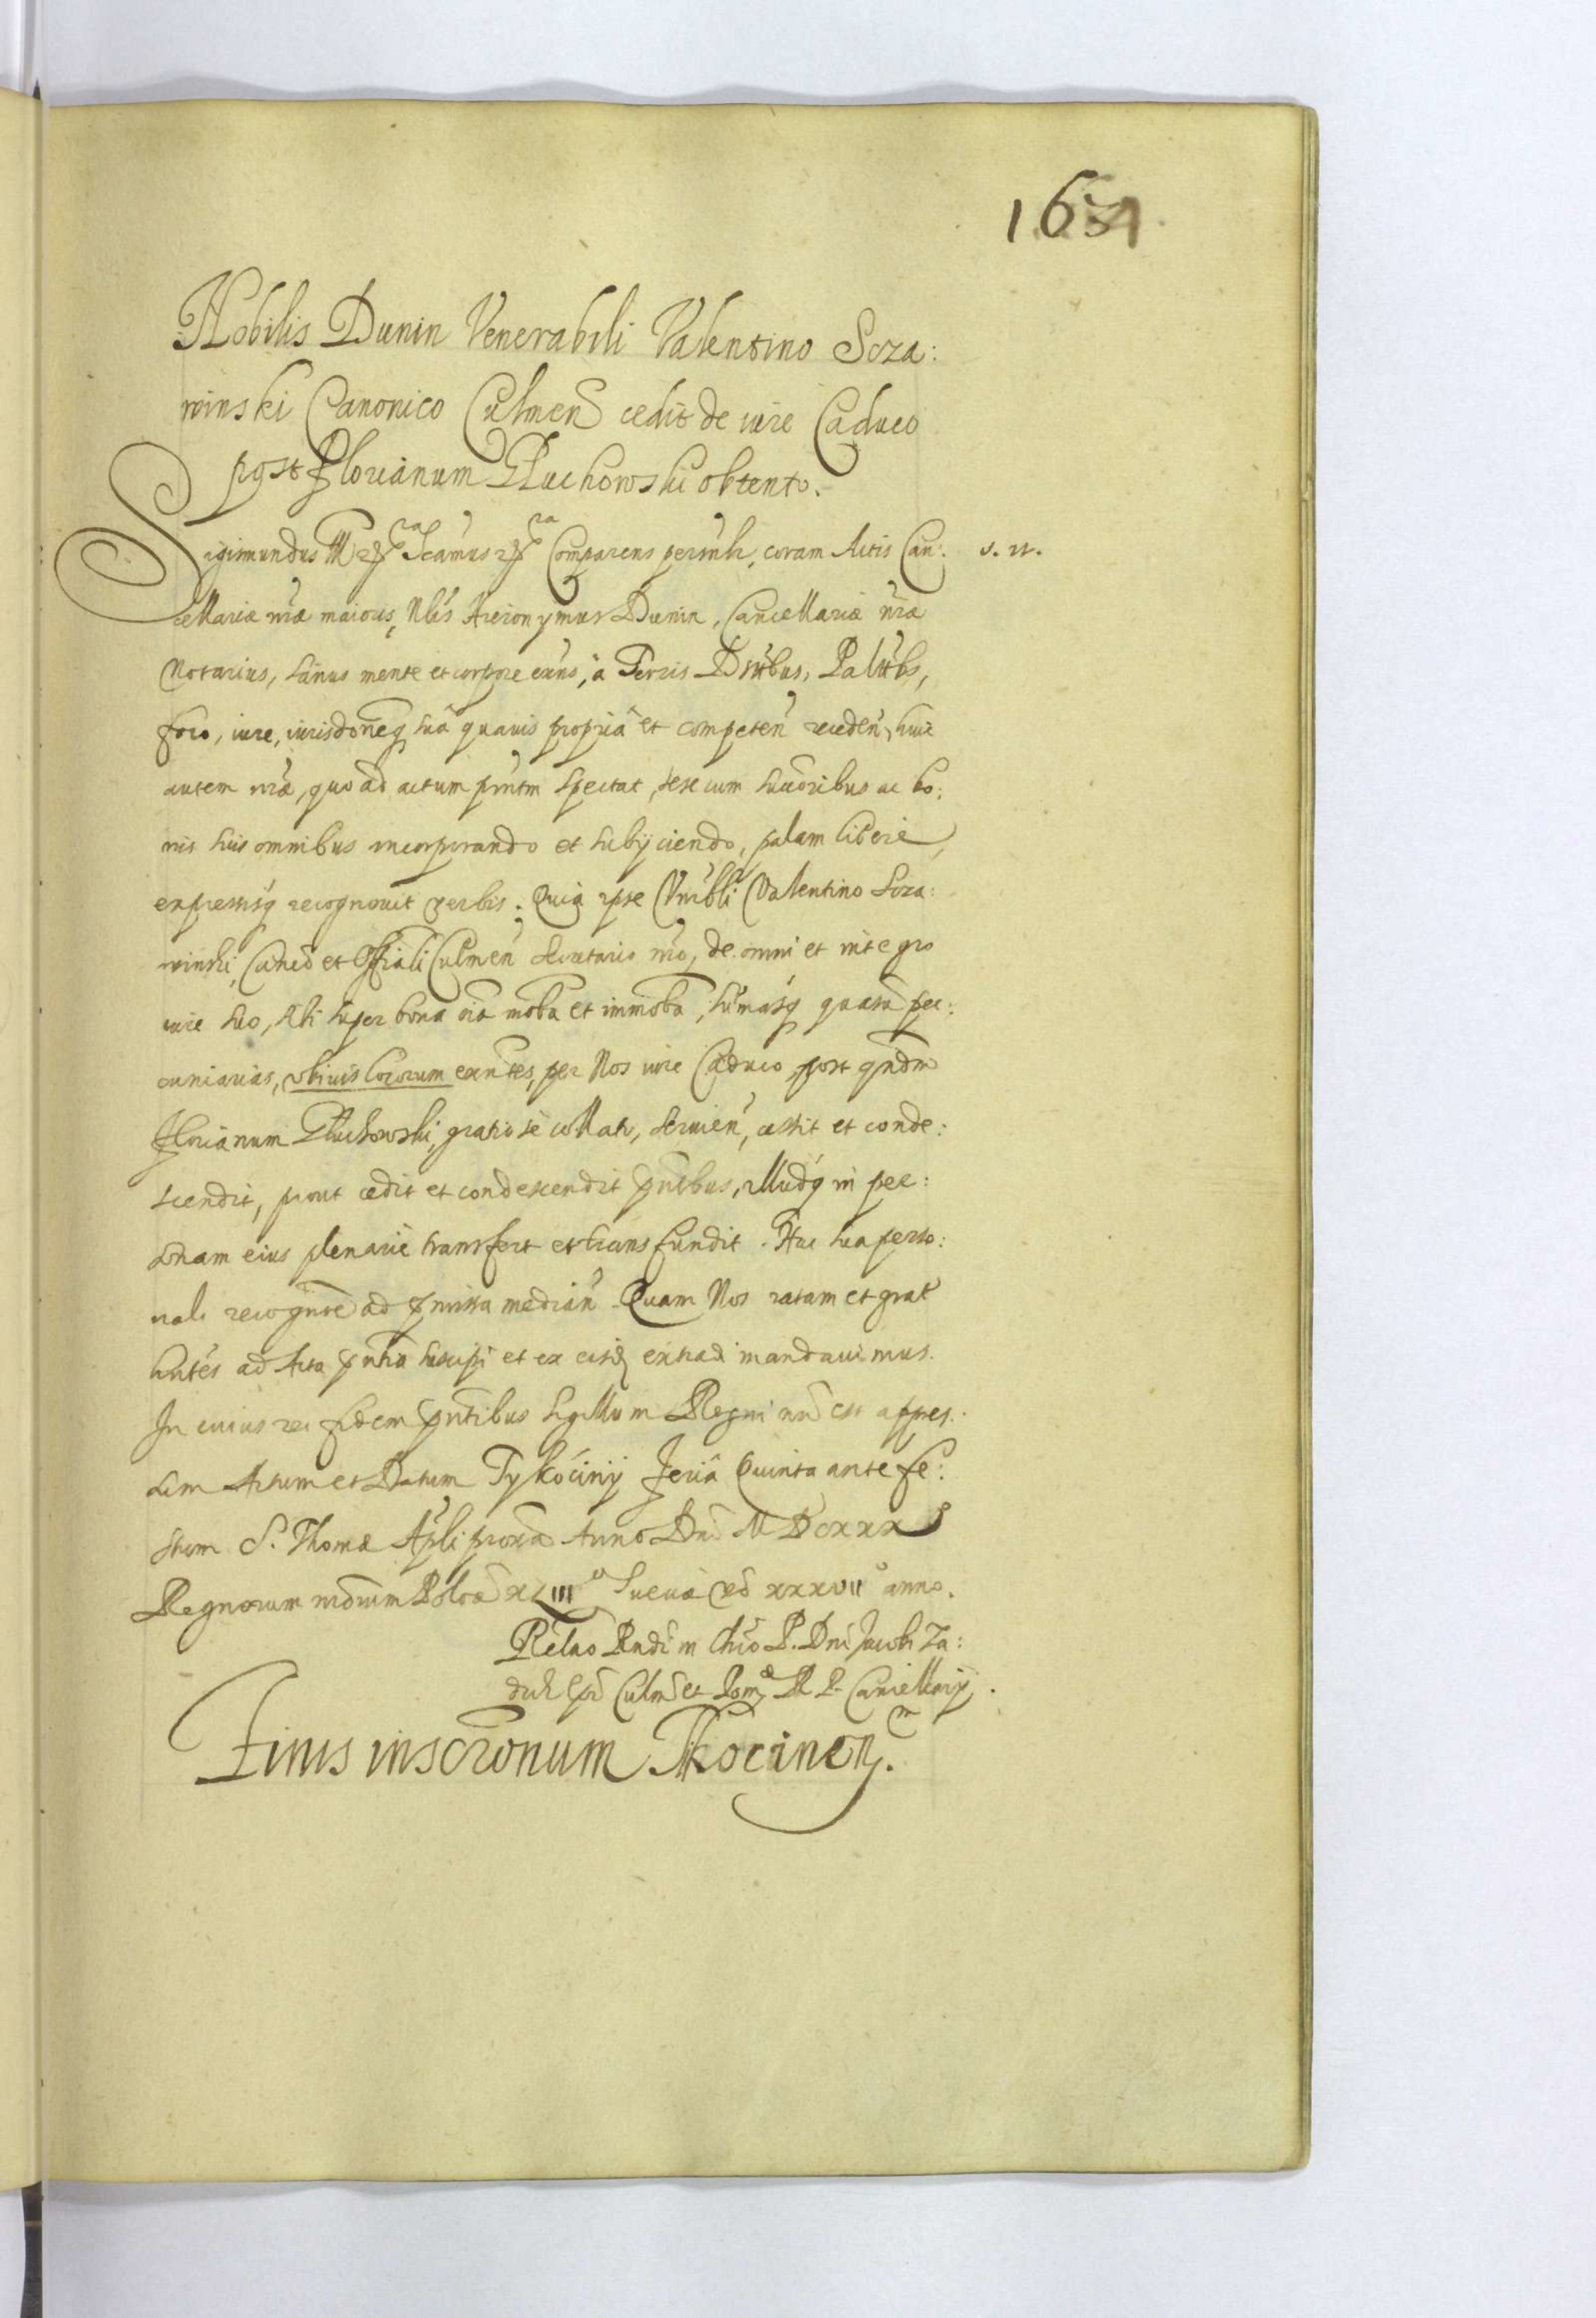 1631
Nobilis Dunin Venerabili Valentino Scza:
winski Canonico Culmeñ cedit de iure Caduco
post Florianum Gluchowski obtento.
Sigismundus III Comparens coram Actis Can: s. n.
cellariæ nr̃æ maioris, Nl̃is Hieronymus Dunin, Cancellariæ nr̃æ
Notarius, sanus mente et corpore exñs, à Terris Palt̃tbs,
foro, iure, iurisdõneq suâ quavis propriâ et competeñ recedeñ, huic
autem nr̃æ, quo ad actum pñtm spectat, sese cum successoribus ac bo:
nis suis omnibus incorporando et subijciendo, palam liberè,
expressisq recognovit verbis. Quia ipse Vñrbli Valentino Scza:
winski, Canco et Offiali Culmeñ Secretario nr̃o, de omni et integro
iure suo, sibi super bona oĩa moba et immoba, sũmasq quasuis pec:
cuniarias, ubiuis locorum exñtes, per Nos iure Caduco post qñdm
Florianum Gluchowski, gratiosè collato, servieñ, cessit et conde:
scendit, prout cedit et condescendit pñtibus, illudq in per:
sonam eius plenariè transfert et transfundit. Hac sua perso:
nali recogñtne ad pmissa mediañ. Quam Nos ratam et grat
hñtes ad Acta pñtia suscipi et ex eisd extradi mandavimus.
In cuius rei fidem pñtibus sigillum Regni nr̃i est appres:
sum Actum et Datum Tykocinij Feriâ Quinta ante fe:
stum S. Thomæ Apli proxa Anno Dni MDCXXX
Regnorum nrõrum Poloæ XLIII Sueciæ vō XXXVII anno.
Relao Rndi in Chr̃o P. Dni Jacobi Za:
dzik Epi Culmeñ et Pom R. P. Cancellarij.
Finis inscrõnum Tkocineñ.